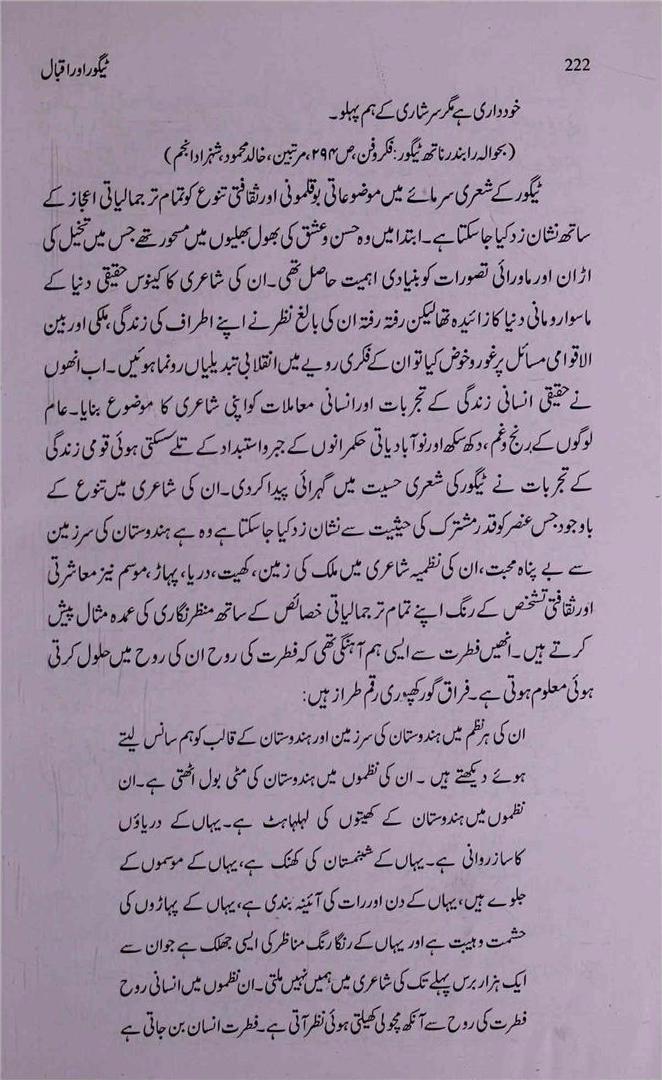 222
ٹیگور اور اقبال
خودداری ہے مگر سرشاری کے ہم پہلو۔
(بحوالہ رابندر ناتھ ٹیگور: فکر وفن، ص ۲۹۴، مرتبین، خالد محمود، شہزاد انجم)
ٹیگور کے شعری سرمائے میں موضوعاتی بوقلمونی اور ثقافتی تنوع کو تمام تر جمالیاتی اعجاز کے
ساتھ نشان زد کیا جاسکتا ہے۔ ابتدا میں وہ حسن وعشق کی بھول بھلیوں میں مسحور تھے جس میں تخیل کی
اڑان اور ماورائی تصورات کو بنیادی اہمیت حاصل تھی۔ ان کی شاعری کا کینوس حقیقی دنیا کے
ماسوا رومانی دنیا کا زائیدہ تھا لیکن رفتہ رفتہ ان کی بالغ نظر نے اپنے اطراف کی زندگی، ملکی اور بین
الاقوامی مسائل پر غور وخوض کیا تو ان کے فکری رویے میں انقلابی تبدیلیاں رونما ہوئیں۔ اب انھوں
نے حقیقی انسانی زندگی کے تجربات اور انسانی معاملات کو اپنی شاعری کا موضوع بنایا۔ عام
لوگوں کے رنج وغم، دکھ سکھ اور نوآبادیاتی حکمرانوں کے جبر واستبداد کے تلے سسکتی ہوئی قومی زندگی
کے تجربات نے ٹیگور کی شعری حسیت میں گہرائی پیدا کردی۔ ان کی شاعری میں تنوع کے
باوجود جس عنصر کو قدر مشترک کی حیثیت سے نشان زد کیا جاسکتا ہے وہ ہے ہندوستان کی سرزمین
سے بے پناہ محبت، ان کی نظمیہ شاعری میں ملک کی زمین، کھیت، دریا، پہاڑ، موسم نیز معاشرتی
اور ثقافتی تشخص کے رنگ اپنے تمام تر جمالیاتی خصائص کے ساتھ منظر نگاری کی عمدہ مثال پیش
کرتے ہیں۔ انھیں فطرت سے ایسی ہم آہنگی تھی کہ فطرت کی روح ان کی روح میں حلول کرتی
ہوئی معلوم ہوتی ہے۔ فراق گورکھپوری رقم طراز ہیں:
ان کی ہر نظم میں ہندوستان کی سرزمین اور ہندوستان کے قالب کو ہم سانس لیتے
ہوئے دیکھتے ہیں ۔ ان کی نظموں میں ہندوستان کی مٹی بول اٹھتی ہے۔ ان
نظموں میں ہندوستان کے کھیتوں کی لہلہاہٹ ہے۔ یہاں کے دریاؤں
کا ساز روانی ہے۔ یہاں کے شبنمستان کی کھنک ہے، یہاں کے موسموں کے
جلوے ہیں، یہاں کے دن اور رات کی آئینہ بندی ہے، یہاں کے پہاڑوں کی
حشمت وہیبت ہے اور یہاں کے رنگارنگ مناظر کی ایسی جھلک ہے جو ان سے
ایک ہزار برس پہلے تک کی شاعری میں ہمیں نہیں ملتی۔ ان نظموں میں انسانی روح
فطرت کی روح سے آنکھ مچولی کھیلتی ہوئی نظر آتی ہے۔ فطرت انسان بن جاتی ہے